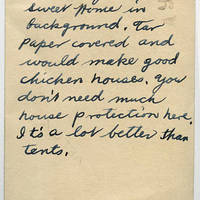 Sweet Home in
background. Tar
Paper covered and
would make good
chicken houses. You
don't need much
house protection here.
It's a lot better than
tents.